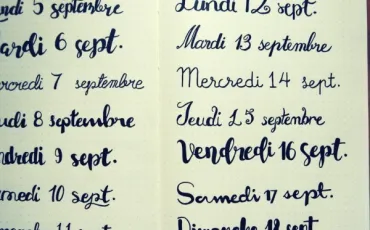 5 septembre
6 sept.
7 septembre
8 septembre
9 sept.
10 sept.
11 sept.
Lundi 12 sept.
Mardi 13 septembre
Mercredi 14 sept.
Jeudi 15 septembre
Vendredi 16 sept.
Samedi 17 sept.
Dimanche 18 sept.